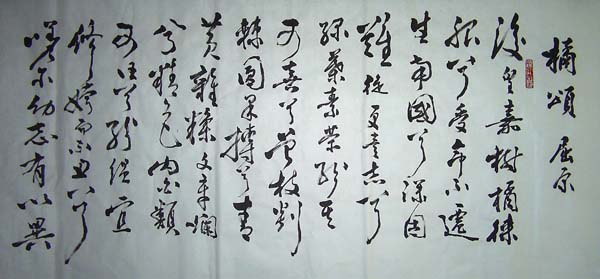 橘頌 屈原
後皇嘉樹橘徠
服兮受命不遷
生南國兮深固
難徙更壹志兮
綠葉素榮紛其
可喜兮曾枝剡
棘圓果摶兮青
黃雜糅文章爛
兮精色內白類
可任兮紛縕宜
修姱而不丑兮
嗟尔幼志有以異